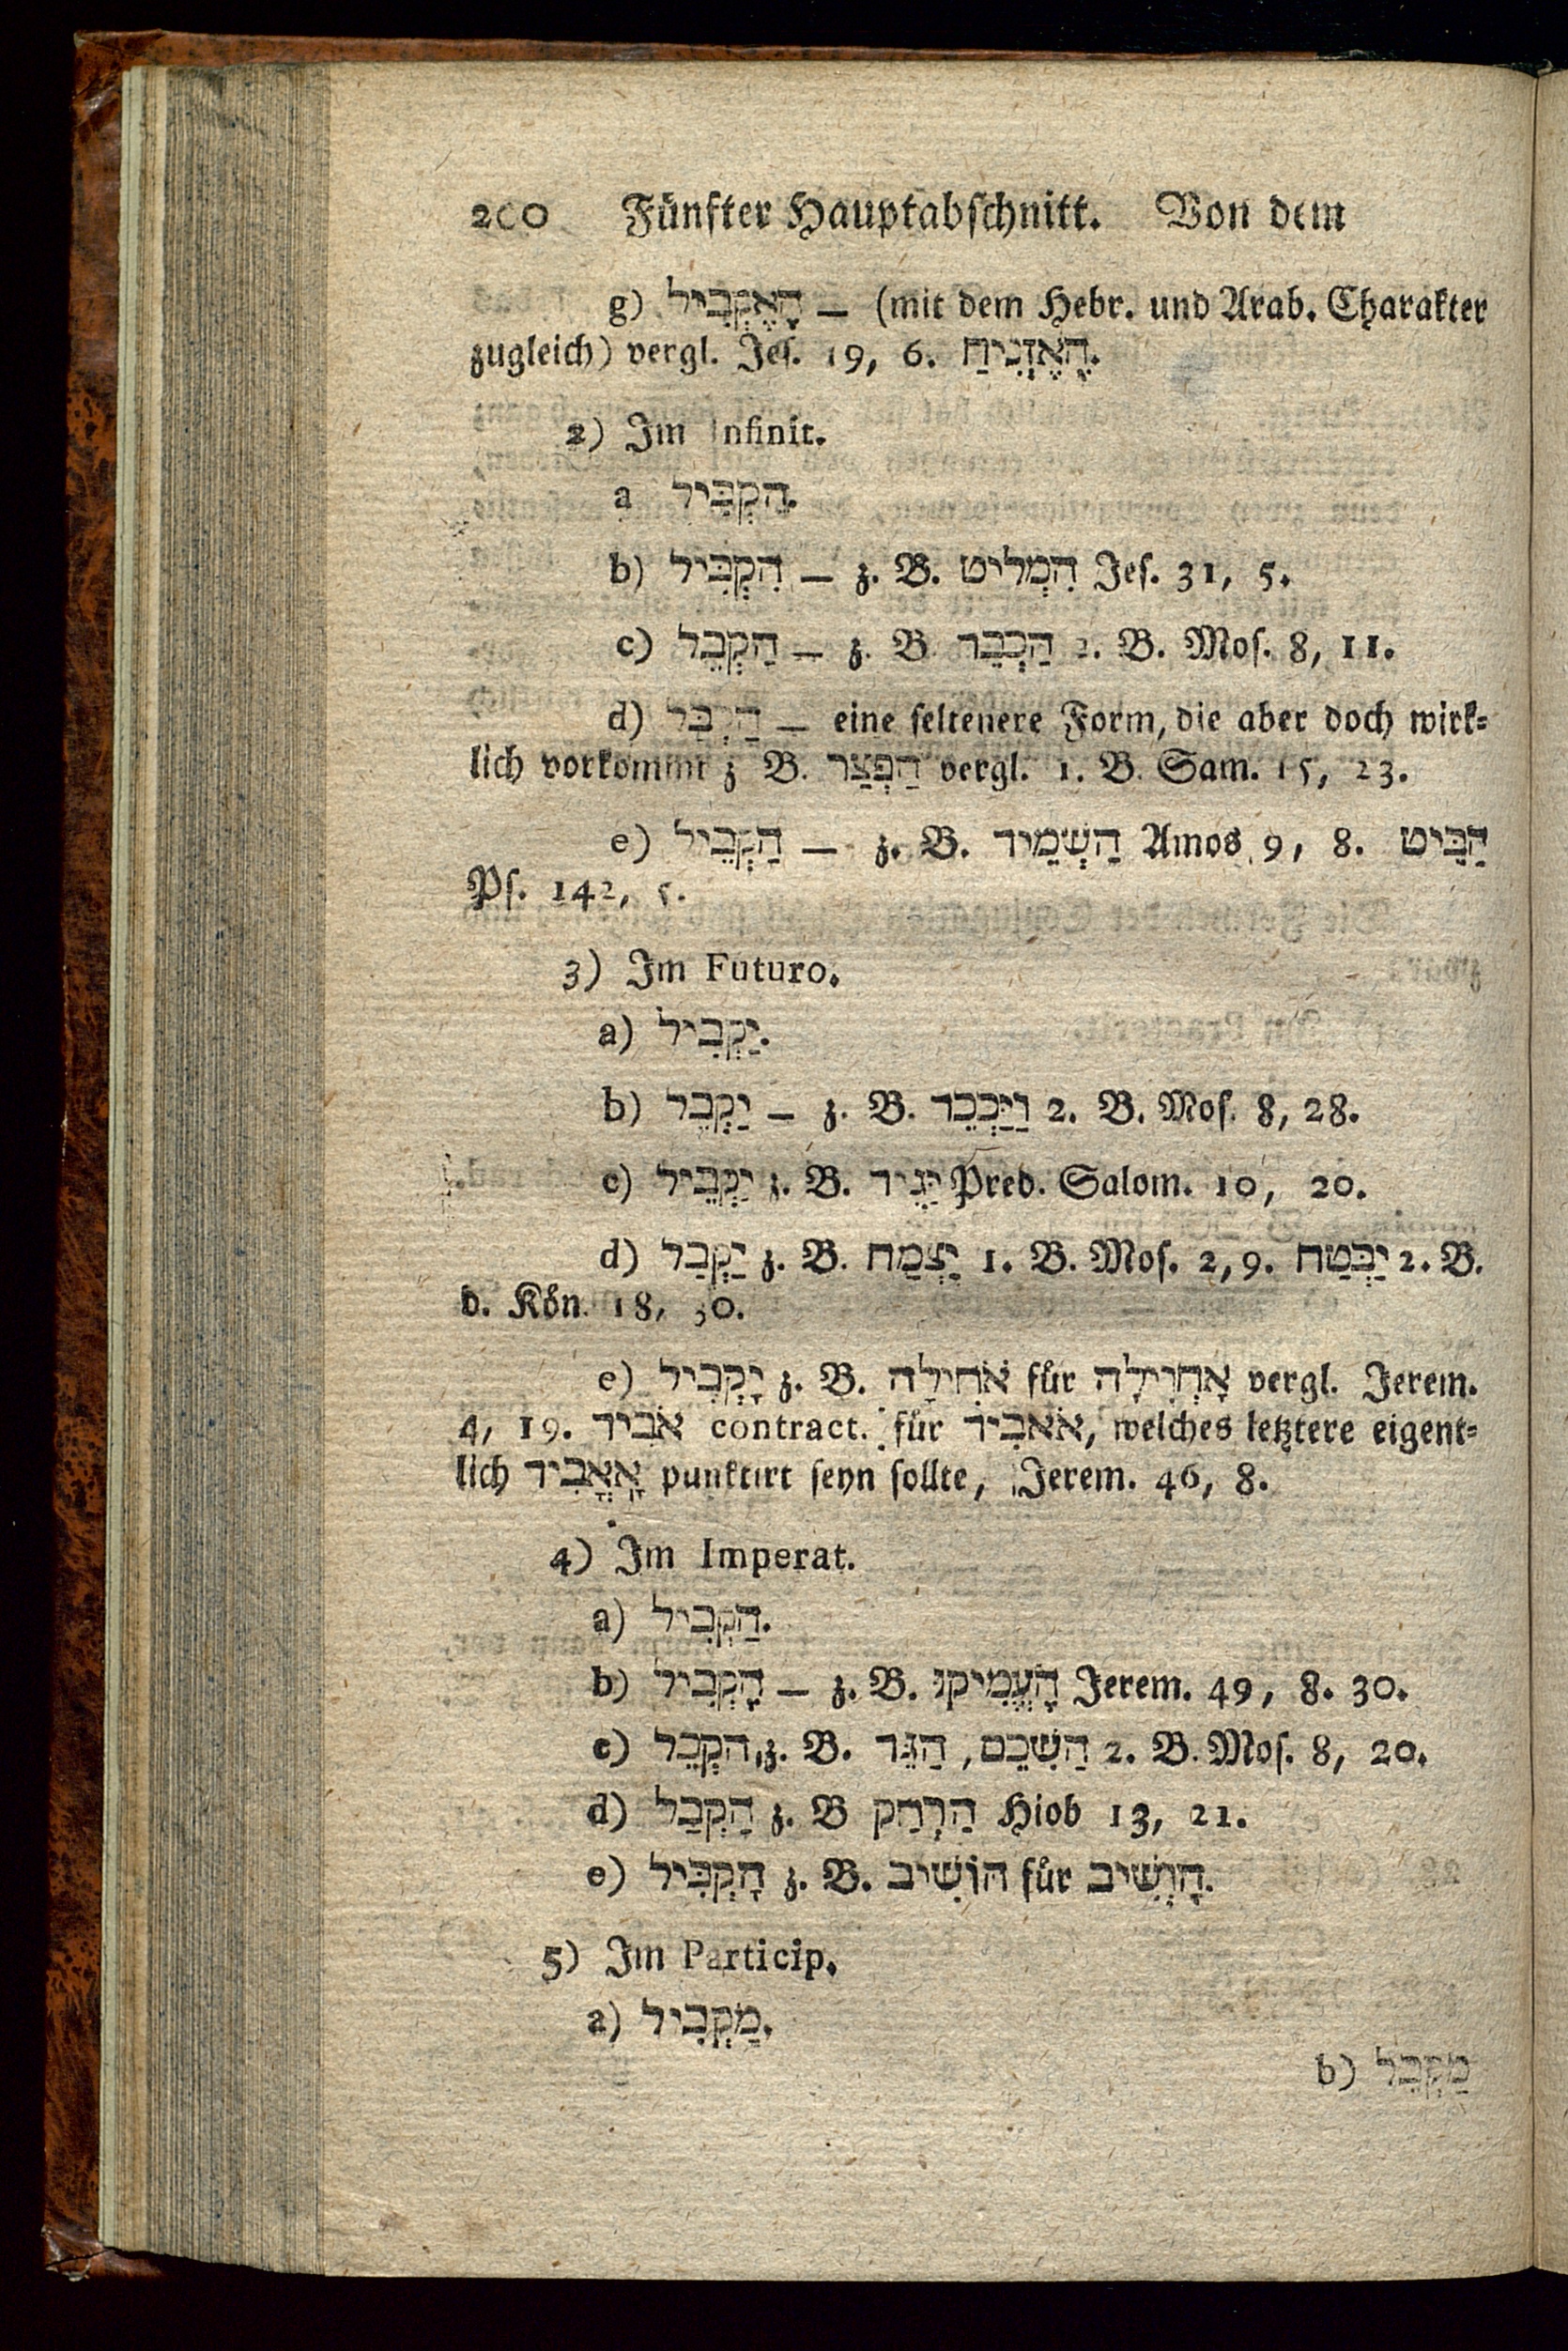 200 Fünfter Hauptabschnitt. Von dem
g) הָאֶקְבִּיל — (mit dem Hebr. und Arab. Charakter
zugleich) vergl. Jes. 19, 6. הֶאֱזְנִיחַ.
2) Im Infinit.
a הַקְבִּיל.
b) הִקְבִּיל — z. B. הִמְלִיט Jes. 31, 5.
c) הַקְבֵּל — z. B. הַכְבֵּד 2. B. Mos. 8, 11.
d) — eine seltenere Form, die aber doch wirk=
lich vorkommt z B. הַפְצַר vergl. 1. B. Sam. 15, 23.
e) הַקְבֵּיל — z. B. הַשְׁמֵיד Amos 9, 8. הַבֵּיט
Ps. 142, 5.
3) Im Futuro.
a) יַקְבִּיל.
b) יַקְבֵּל — z. B. וַיַּכְבֵּד 2. B. Mos. 8, 28.
c) יַקְבֵּיל z. B. יַגֵּיד Pred. Salom. 10, 20.
d) יַקְבַּל z. B. יַצְמַח 1. B. Mos. 2, 9. יַבְטַח 2. B.
d. Kön. 18, 30.
e) יָקְבִיל z. B. אֹחִילָה für אָחְוִילָה vergl. Jerem.
4, 19. אֹבִיד contract. für אֹאבִיד, welches letztere eigent=
lich אָאֳבִיד punktirt seyn sollte, Jerem. 46, 8.
4) Im Imperat.
a) הַקְבִּיל.
b) הָקְבִּיל — z. B. הָעֳמִיקוּ Jerem. 49, 8. 30.
c) הקְבֵּל, z. B. הַשְׁכֵּם, הַגֵּד 2. B. Mos. 8, 20.
d) הַקְבַּל z. B הַרְחַק Hiob 13, 21.
e) הָקְבִּיל z. B. הוֹשִׁיב für הָוְשִׁיב.
5) Im Particip.
a) מַקְבִּיל.
b) מַקְבֵּל